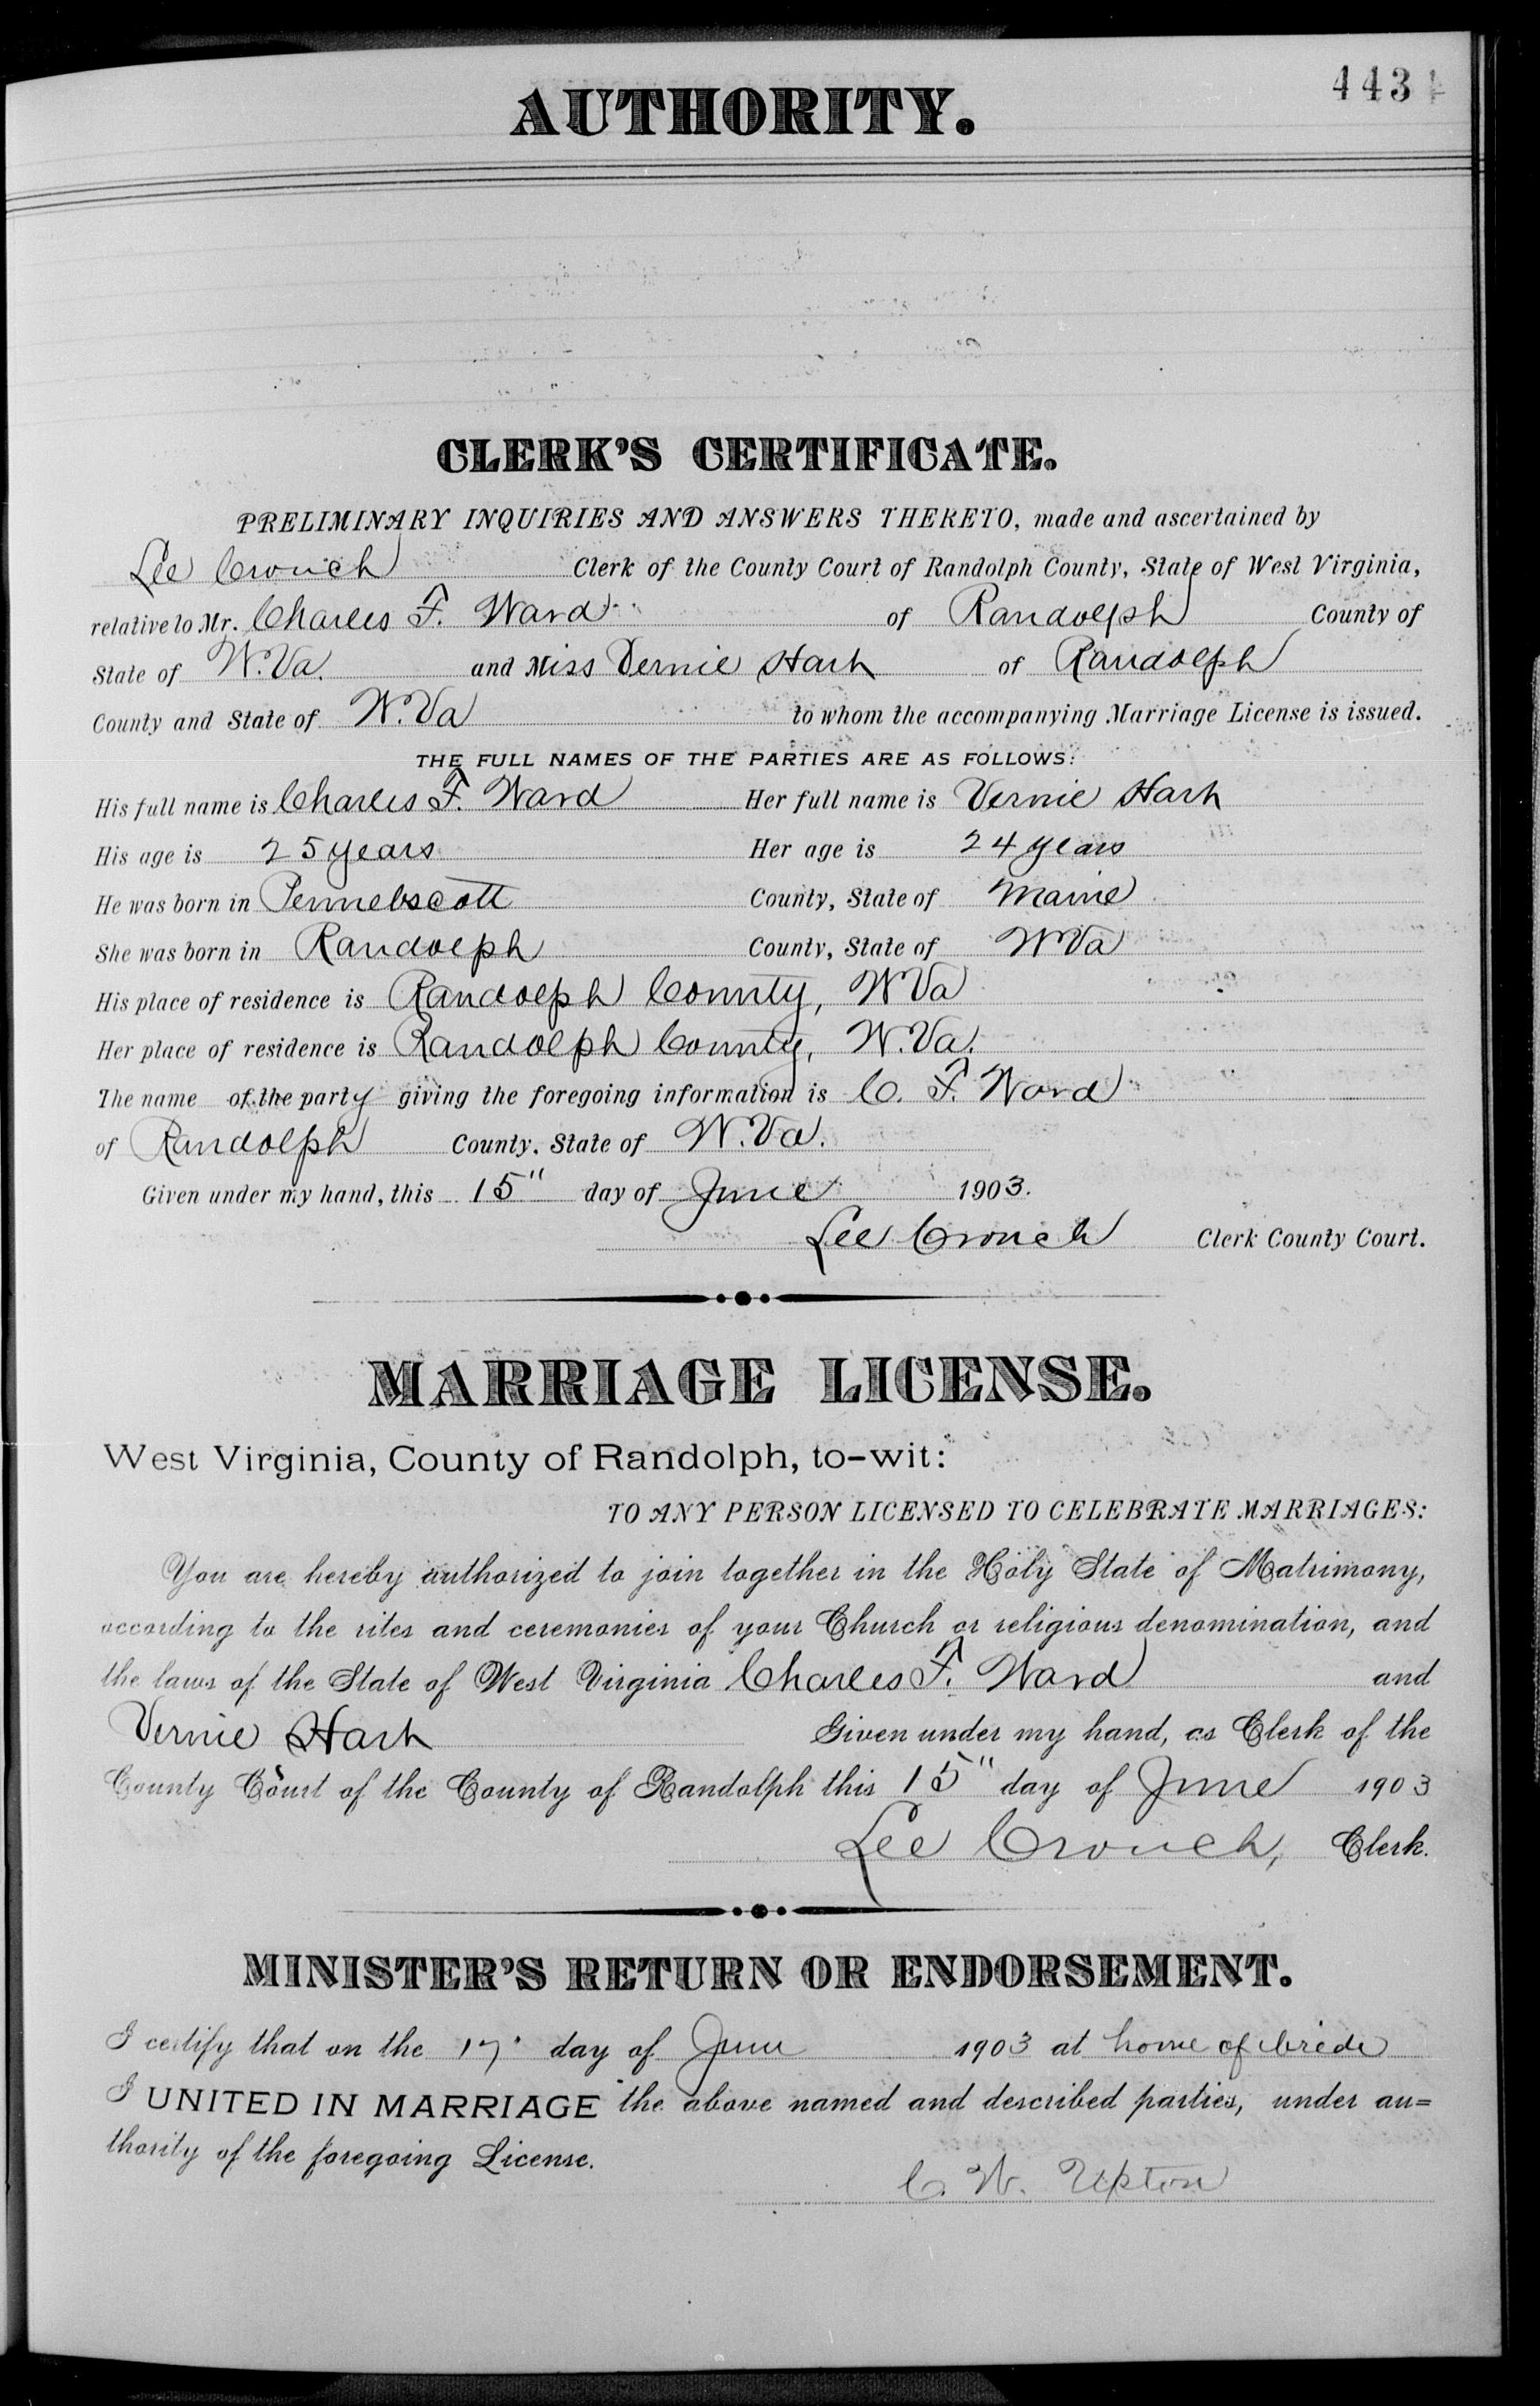 4434
AUTHORITY.
CLERK'S CERTIFICATE.
PRELIMINARY INQUIRIES AND ANSWERS THERETO, made and ascertained by
Lee Crouch Clerk of the County Court of Randolph County, State of West Virginia,
relative to Mr. Charles F. Ward of Randolph County of
State of W.Va. and Miss Vernie Hart of Randolph
County and State of W.Va to whom the accompanying Marriage License is issued.
THE FULL NAMES OF THE PARTIES ARE AS FOLLOWS:
His full name is Charles F. Ward Her full name is Vernie Hart
His age is 25 years Her age is 24 years
He was born in Pennebscott County, State of Maine
She was born in Randolph County, State of W Va
His place of residence is Randolph County, W Va
Her place of residence is Randolph County, W.Va.
The name of the party giving the foregoing information is C. F. Ward
of Randolph County, State of W.Va.
Given under my hand, this 15" day of June 1903.
Lee Crouch Clerk County Court.
MARRIAGE LICENSE.
West Virginia, County of Randolph, to-wit:
TO ANY PERSON LICENSED TO CELEBRATE MARRIAGES:
You are hereby authorized to join together in the Holy State of Matrimony,
according to the rites and ceremonies of your Church or religious denomination, and
the laws of the State of West Virginia Charles F. Ward and
Vernie Hart Given under my hand, as Clerk of the
County Court of the County of Randolph this 15" day of June 1903
Lee Crouch, Clerk.
MINISTER'S RETURN OR ENDORSEMENT.
I certify that on the 17 day of June 1903 at home of bride
I UNITED IN MARRIAGE the above named and described parties, under au=
thority of the foregoing License.
C. W. Upton